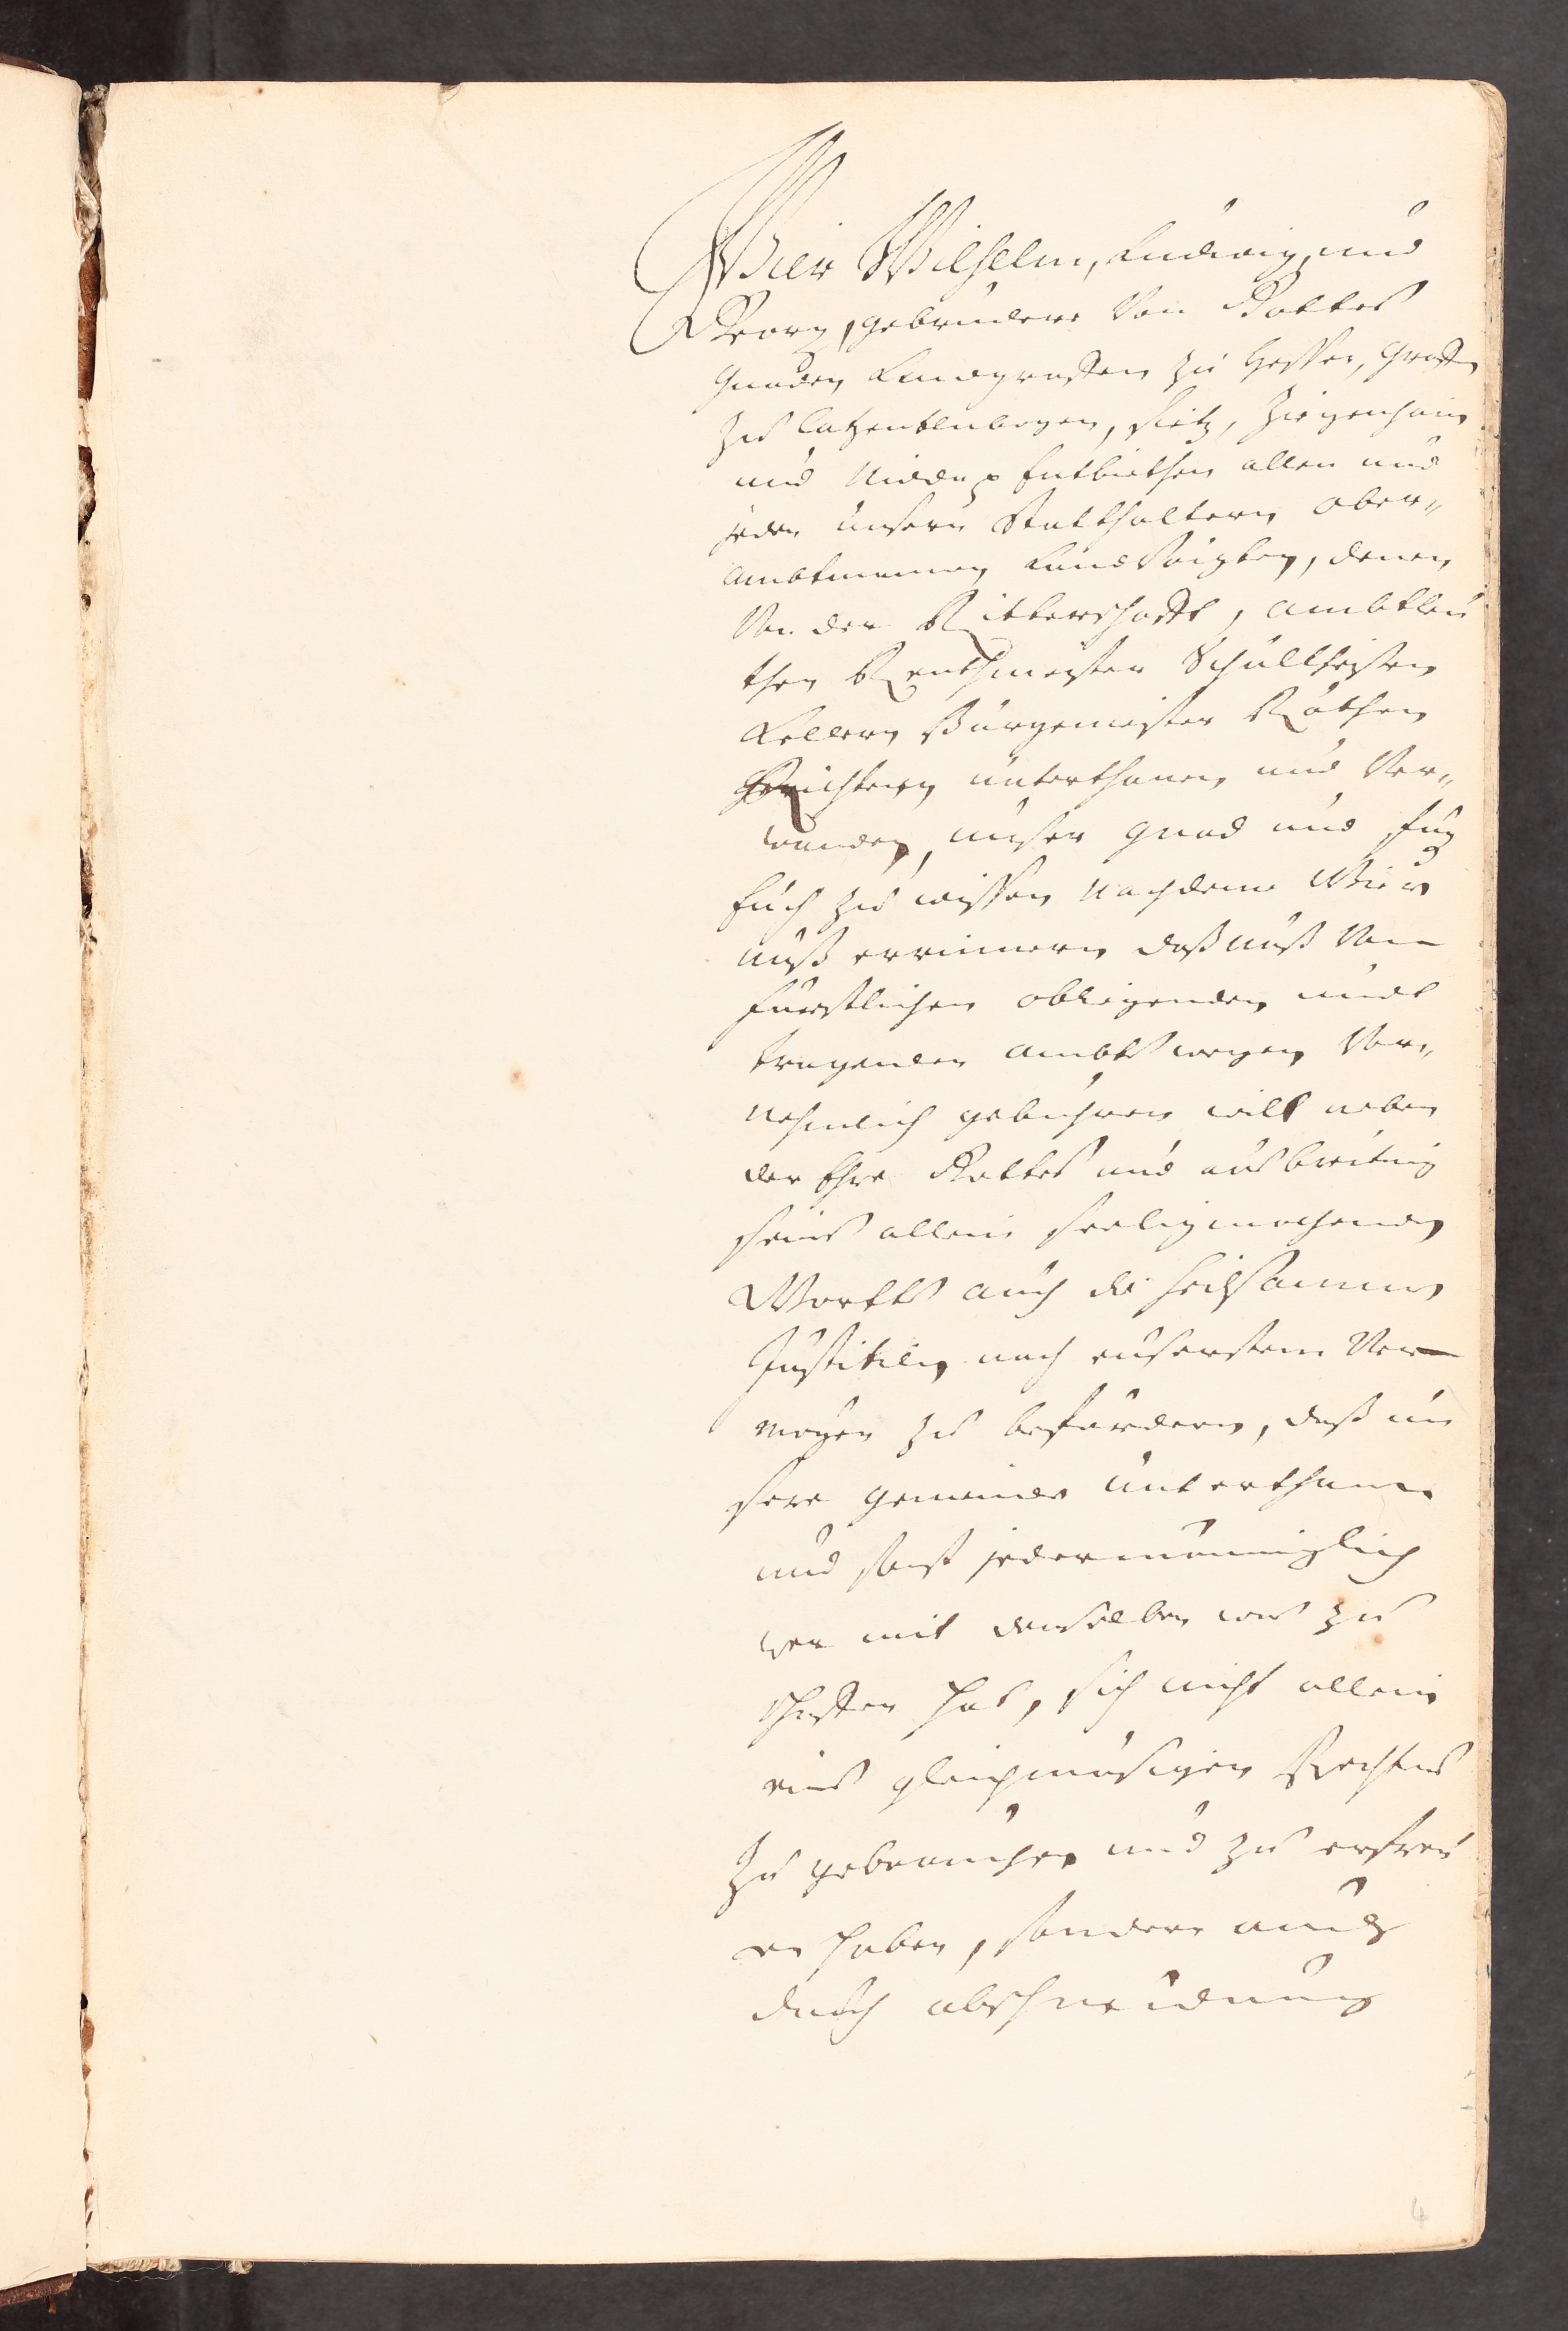 Wier Wilhelm, Ludwig, und
Georg, gebrüdere Von Gottes
gnaden Landgraffen zu Hessen, Graffen
zu Catzenelnbogen, Dietz, Ziegenhain
und Nidda p Entbiethen allen und
jeden unsern Statthaltern Ober„
ambtmannen Landvoigten, denen
Von der Ritterschafft, Ambtleu
then Renthmeister Schultheisen
Kellern Bürgemeister Räthen
Gerichten unterthanen und Ver„
wanden, unser gnad und fug
Euch zu wissen Nachdeme Wier
unß errinnern daß unß Von
fürstlichen obliegenden undt
tragenden Ambts wegen Vor„
nehmlich gebühren will neben
der Ehre Gottes und ausbreitung
seins allein seeligmachenden
Wortts auch die heilsamme
Justitien nach euserstem Ver—
mogen zu beförderen, daß un
sere gemeinde unterthanen
und sonst jedermänniglich
wer mit denselben was zu
schaffen hat, sich nicht allein
eins gleichmäsigen Rechtens
zu gebrauchen und zu erfreu
en haben, sondern auch
durch abschneidung
4